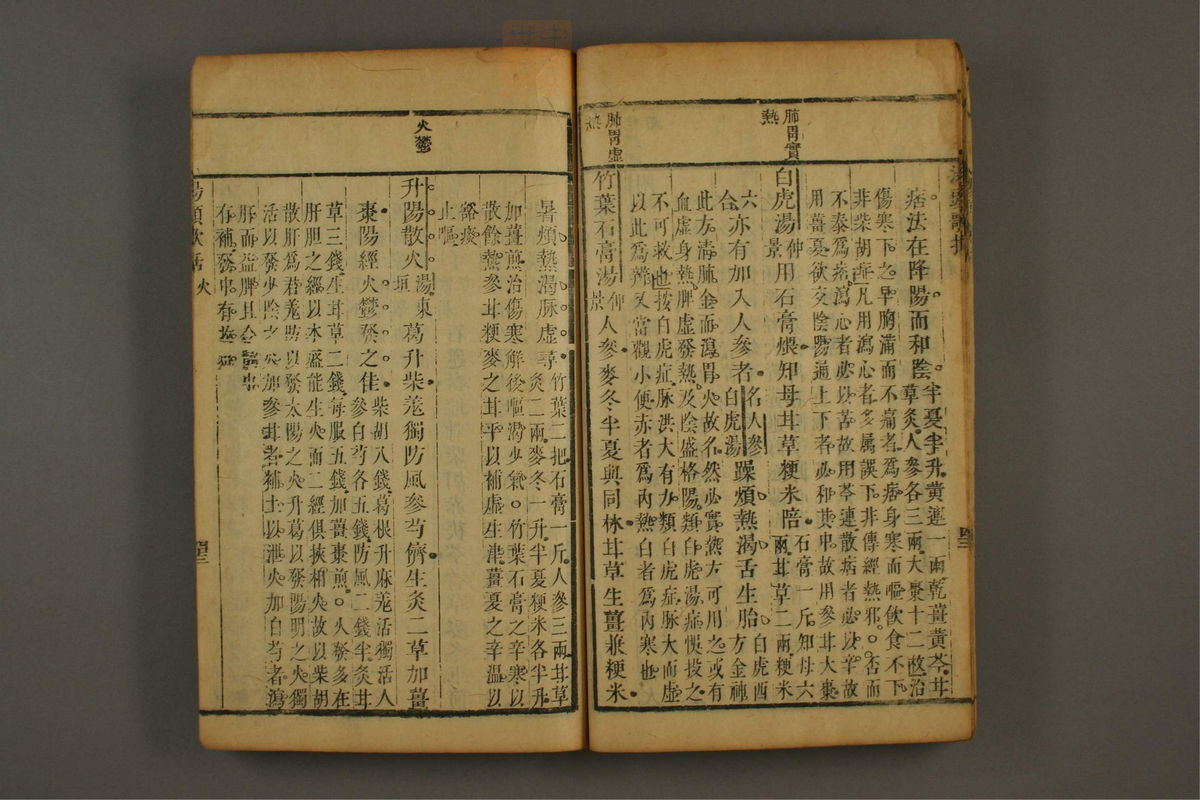 湯頭歌括
痞法在降陽而和陰半夏半升黃連一兩乾薑黃芩甘
草炙人參各三兩大棗十二枚治
傷寒下之早胸滿而不痛者爲痞身寒而嘔飲食不下
非柴胡症凡用瀉心者多屬誤下非傳經熱邪○否而
不泰爲痞瀉心者必以苦故用芩連散痞者必以辛故
用薑夏欲交陰陽通上下者必和其中故用參甘大棗
肺胃實
熱
白虎湯仲景用石膏煨知母甘草粳米陪石膏一斤知母六
兩甘草二兩粳米
六合亦有加入人參者名人參白虎湯躁煩熱渴舌生胎白虎西
方金神
此方淸肺金而瀉胃火故名然必實熱方可用之或有
血虛身熱脾虛發熱及陰盛格陽類白虎湯症悞投之
不可救也按白虎症脉洪大有力類白虎症脉大而虛
以此爲辨又當觀小便赤者爲內熱白者爲內寒也
肺胃虛
熱
竹葉石膏湯仲景人參麥冬半夏與同林甘草生薑兼粳米
暑煩熱渴脉虛尋竹葉二把石膏一斤人參三兩甘草
炙二兩麥冬一升半夏粳米各半升
加薑煎治傷寒解後嘔渴少氣○竹葉石膏之辛寒以
散餘熱參甘粳麥之甘平以補虛生津薑夏之辛溫以
豁痰
止嘔
火鬱
升陽散火湯東垣葛升柴羗獨防風參芍儕生炙二草加薑
棗陽經火鬱發之佳柴胡八錢葛根升麻羗活獨活人
參白芍各五錢防風二錢半炙甘
草三錢生甘草二錢每服五錢加薑棗煎○火發多在
肝胆之經以木盛能生火而二經俱挾相火故以柴胡
散肝爲君羗防以發太陽之火升葛以發陽明之火獨
活以發少陰之火加參甘者補土以泄火加白芍者瀉
肝而益脾且令
有補發中有
湯頭歌括 火